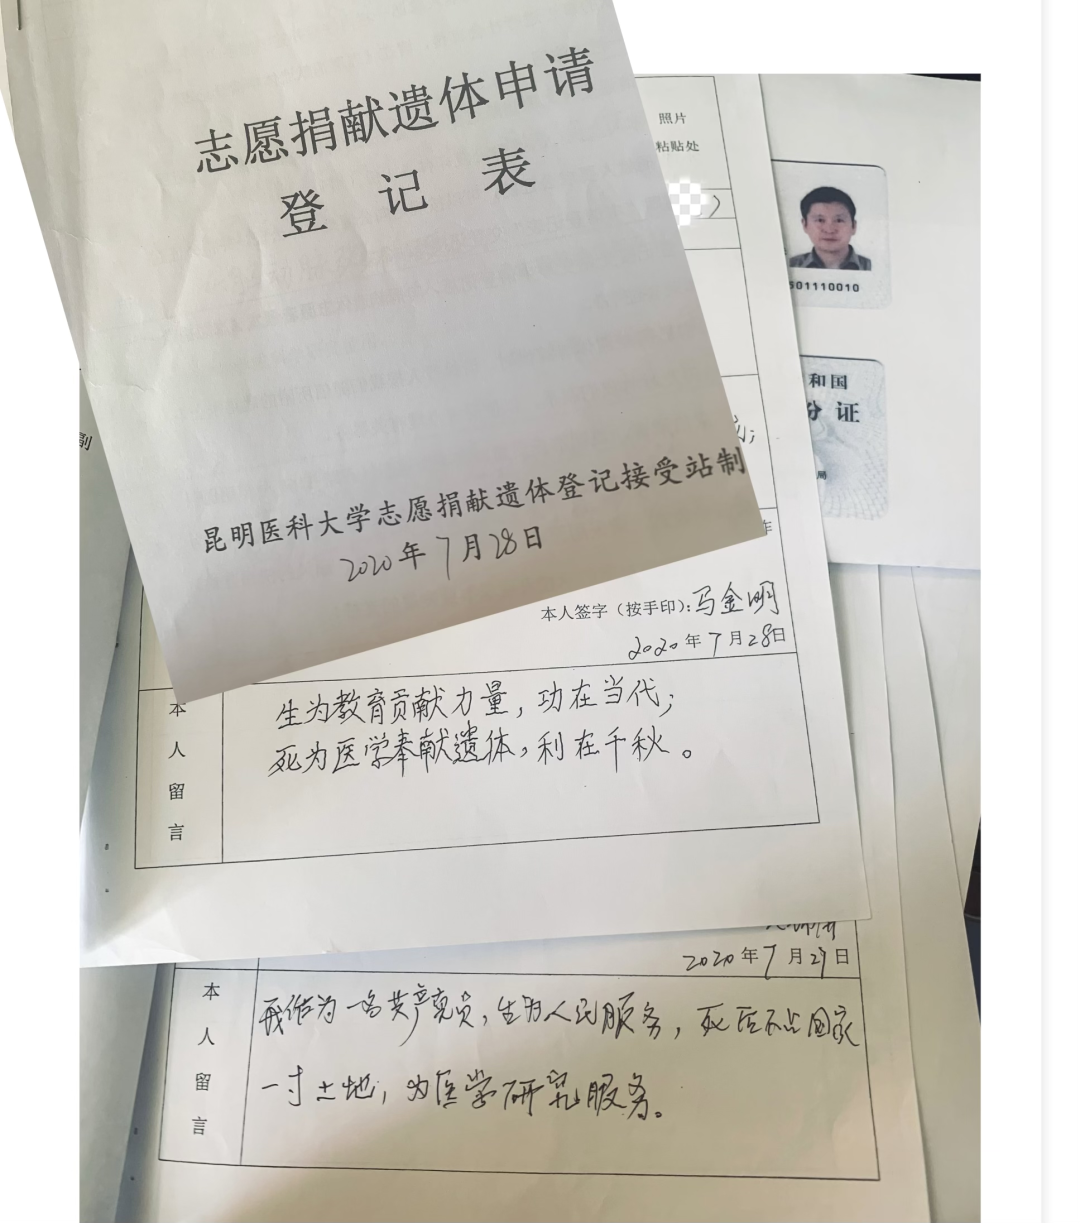 志愿捐献遗体申请
登记表
昆明医科大学志愿捐献遗体登记接受站制
2020年7月28日
照片
粘贴处
）
501110010
和国
份证
局
副
作
本人签字（按手印）：马金明
2020年7月28日
本人留言
生为教育贡献力量，功在当代；
死为医学奉献遗体，利在千秋。
2020年7月29日
本人留言
我作为一名共产党员，生为人民服务，死后不占国家
一寸土地，为医学研究服务。